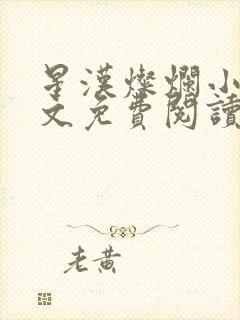 星漢燦爛小
文免費閱讀
老黃